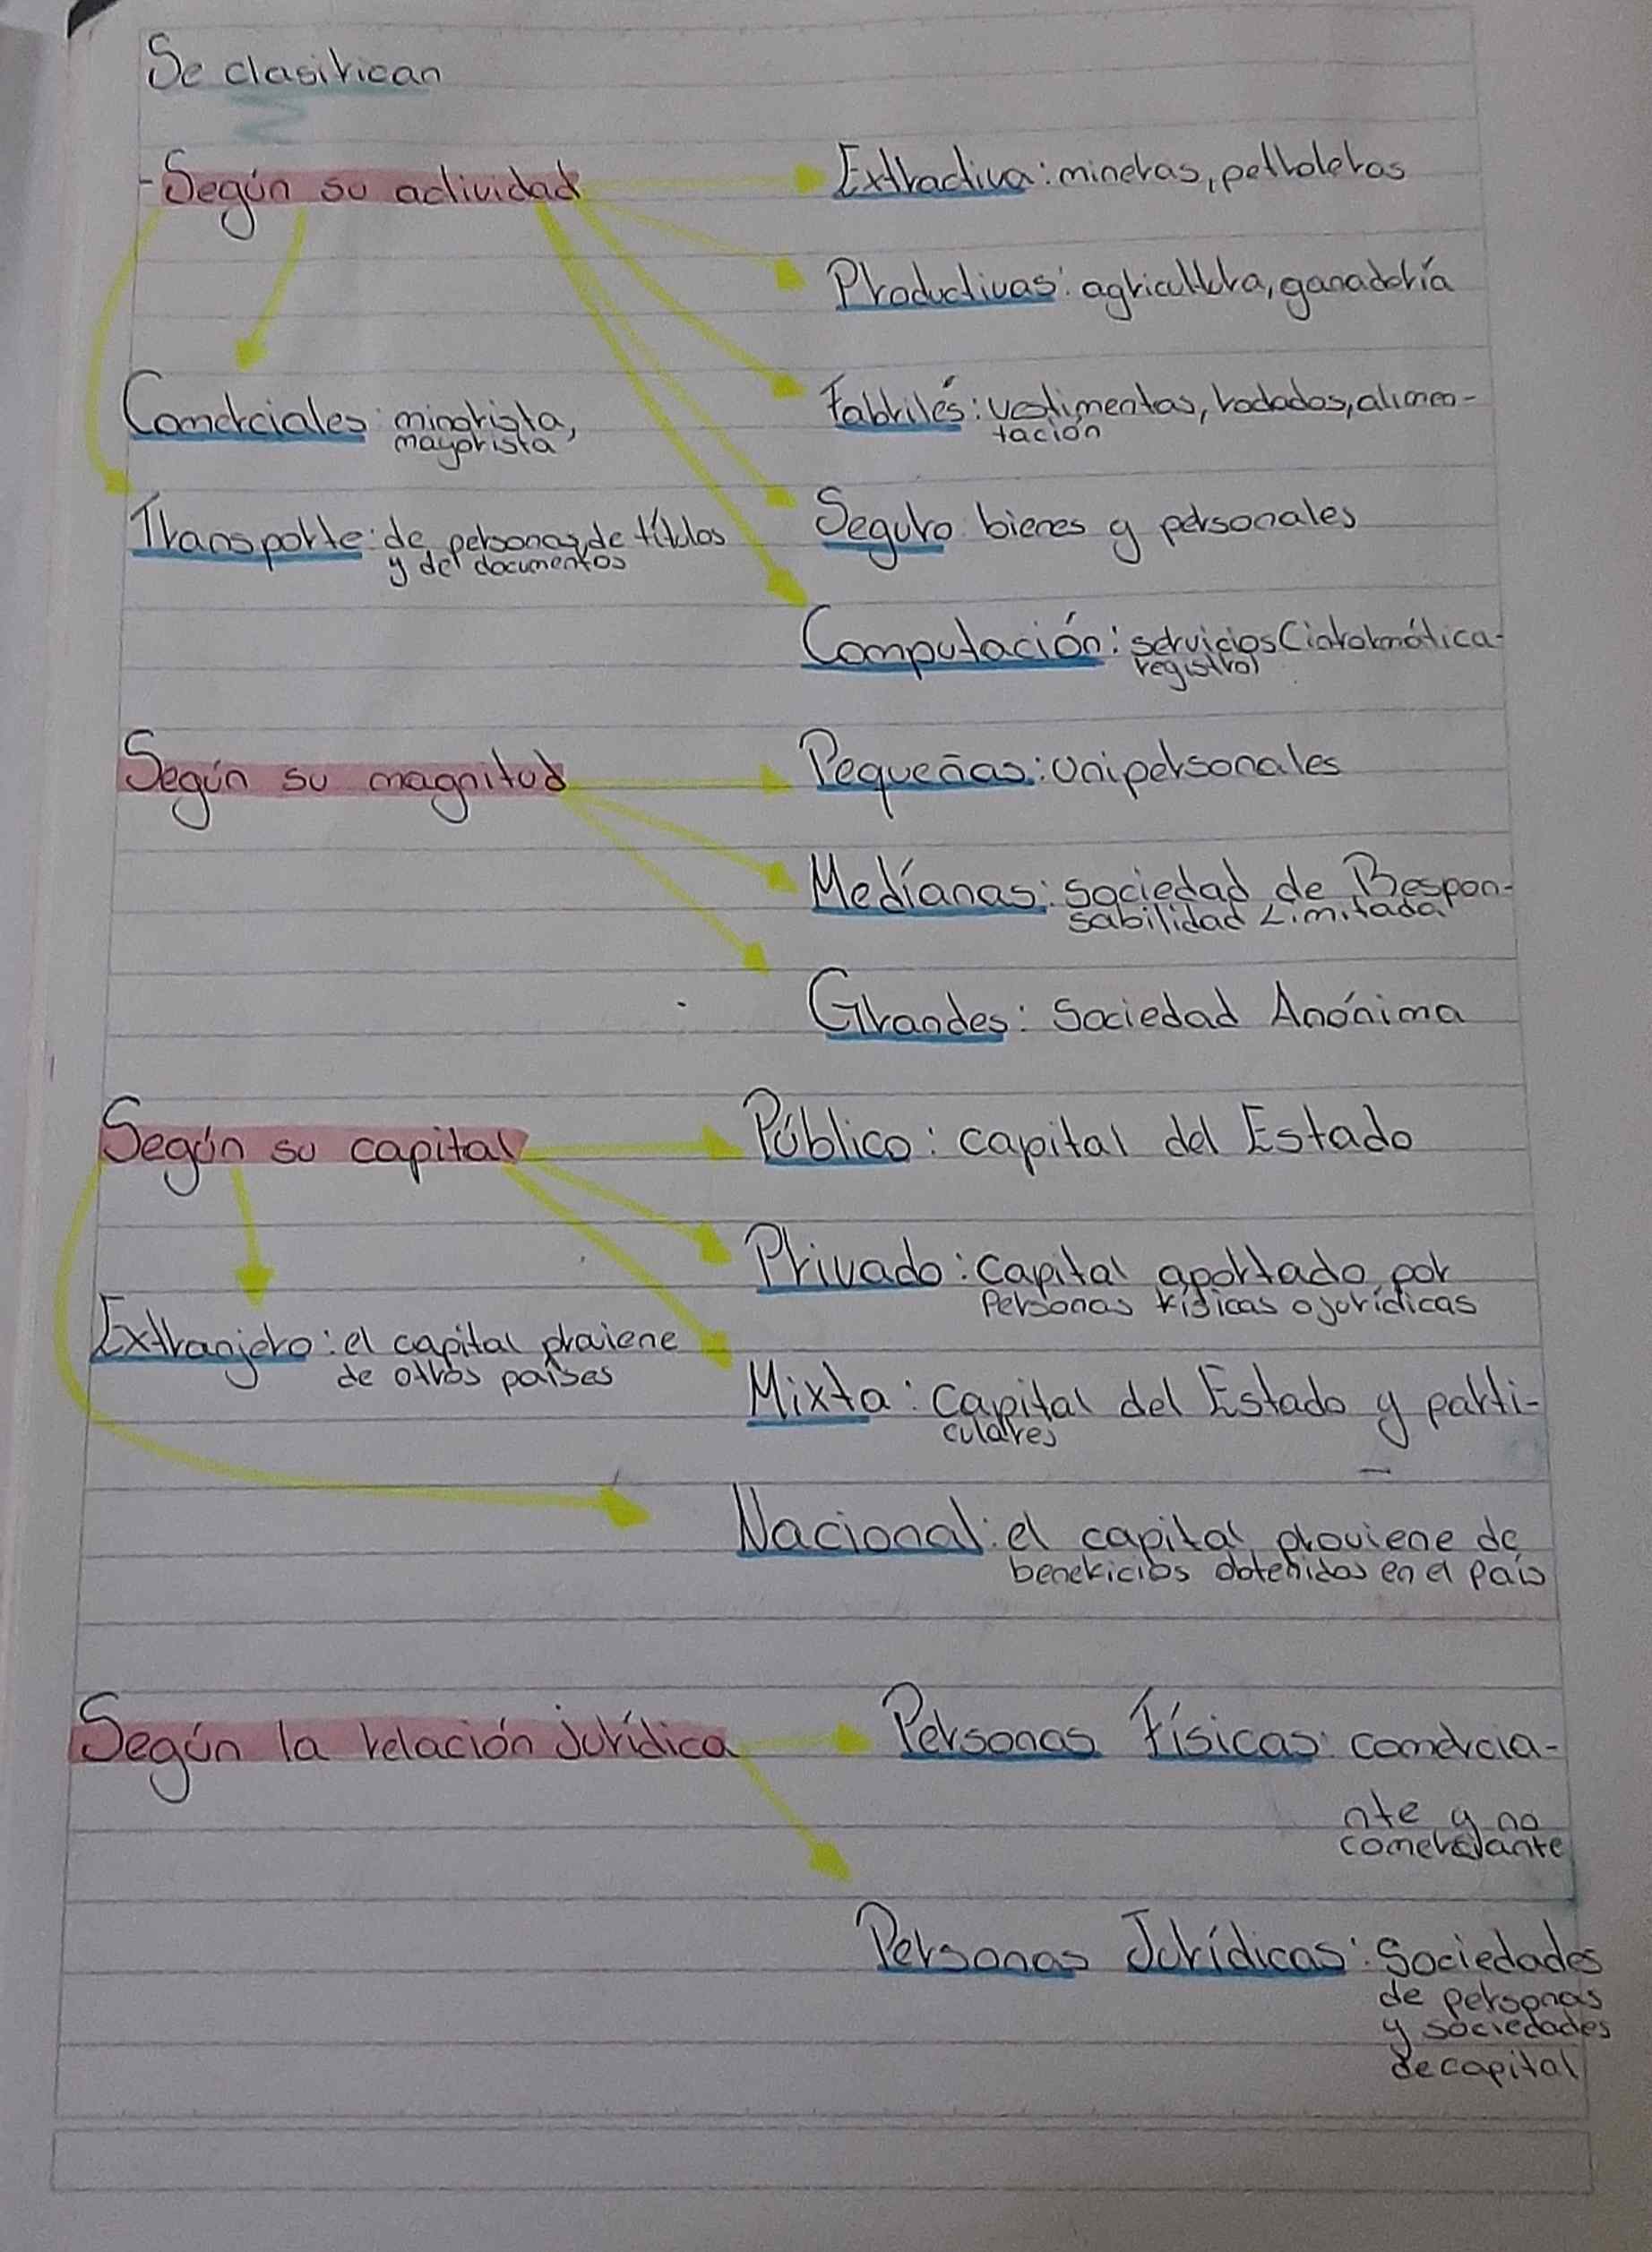 Se clasifican
-Según su actividad
Extractiva: mineras, petroleras
Productivas: agricultura, ganadería
Comerciales: minorista,
mayorista
Fabrilés: vestimentas, rodados, alimen-
tación
Transporte: de personas, de títulos
y de documentos
Seguro bienes y personales
Computación: servicios (informática-
registro)
Según su magnitud
Pequeñas: unipersonales
Medíanas: sociedad de Respon-
sabilidad Limitada
Grandes: Sociedad Anónima
Según su capital
Público: capital del Estado
Privado: capital aportado por
Personas físicas o jurídicas
Extranjero: el capital proviene
de otros países
Mixta: capital del Estado y parti-
culares
Nacional: el capital proviene de
beneficios obtenidos en el país
Según la relación jurídica
Personas físicas: comercia-
nte y no
comerciante
Personas Jurídicas: Sociedades
de personas
y sociedades
de capital